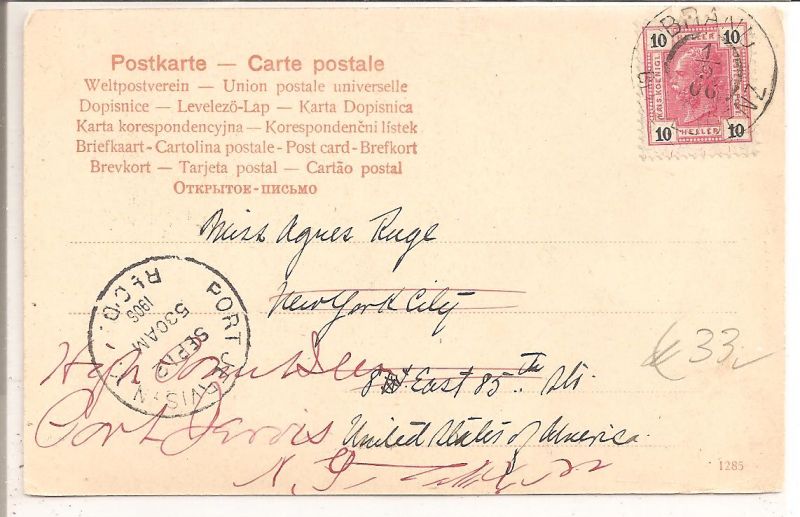 Postkarte — Carte postale
Weltpostverein — Union postale universelle
Dopisnice — Levelező-Lap — Karta Dopisnica
Karta korespondencyjna — Korespondenčni lístek
Briefkaart - Cartolina postale - Post card - Brefkort
Brevkort — Tarjeta postal — Cartão postal
Открытое-письмо
10 10
KAIS.KOENIGL.
10 HELLER 10
BRAN
06
Miss Agnes Ruge
New York City
East 85th Str.
United States of America
Port Jervis
N.
PORT JERVIS, N.
SEP 12
530 AM
1906
REC'D.
33
1285